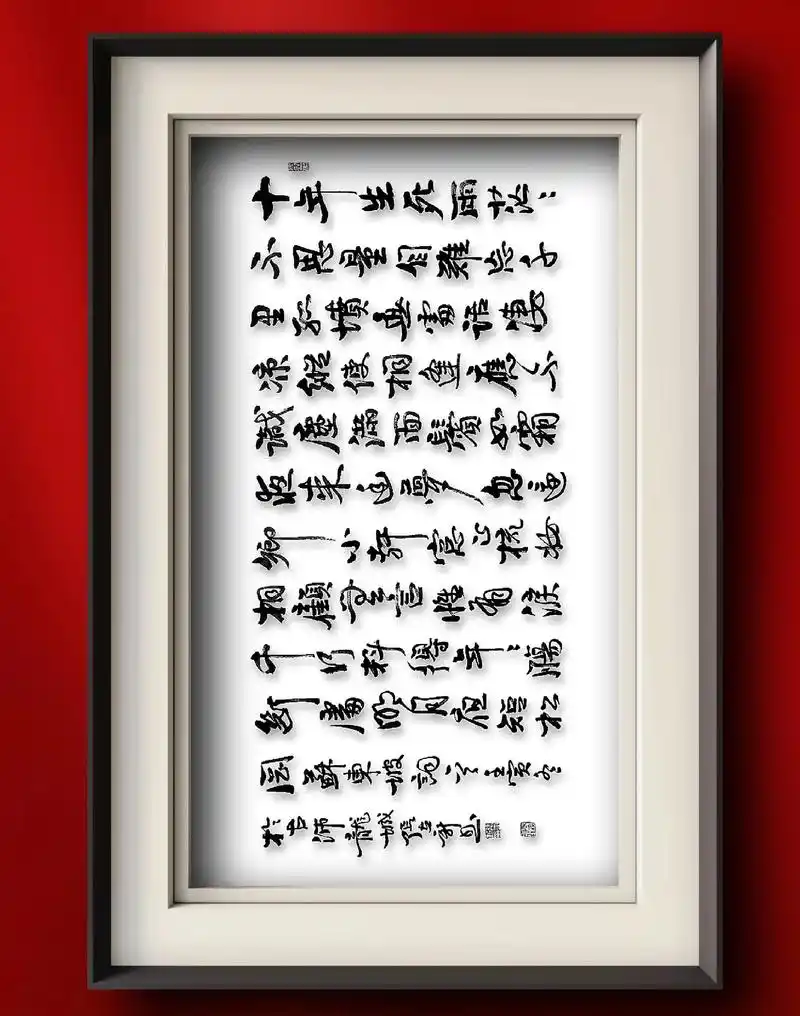 十年生死兩茫〻
不思量自難忘千
里孤墳無處話淒
涼縱使相逢應不
識塵滿面鬢如霜
夜来幽夢忽還
鄉小軒窗正梳妝
相顧無言惟有淚
千行料得年〻腸
斷處明月夜短松
岡蘇東坡詞壬寅冬
於古沛龍城